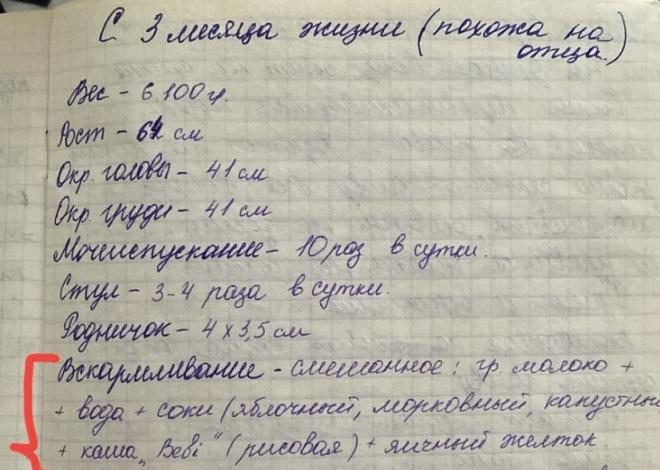 С 3 месяца жизни (похожа на
отца.)
Вес - 6.100 гр.
Рост - 61 см
Окр. головы - 41 см
Окр. груди - 41 см
Мочеиспускание - 10 раз в сутки.
Стул - 3-4 раза в сутки.
Родничок - 4 х 3,5 см
Вскармливание - смешанное: гр. молоко +
+ вода + соки (яблочный, морковный, капустный
+ каша „Bebi" (рисовая) + яичный желток.